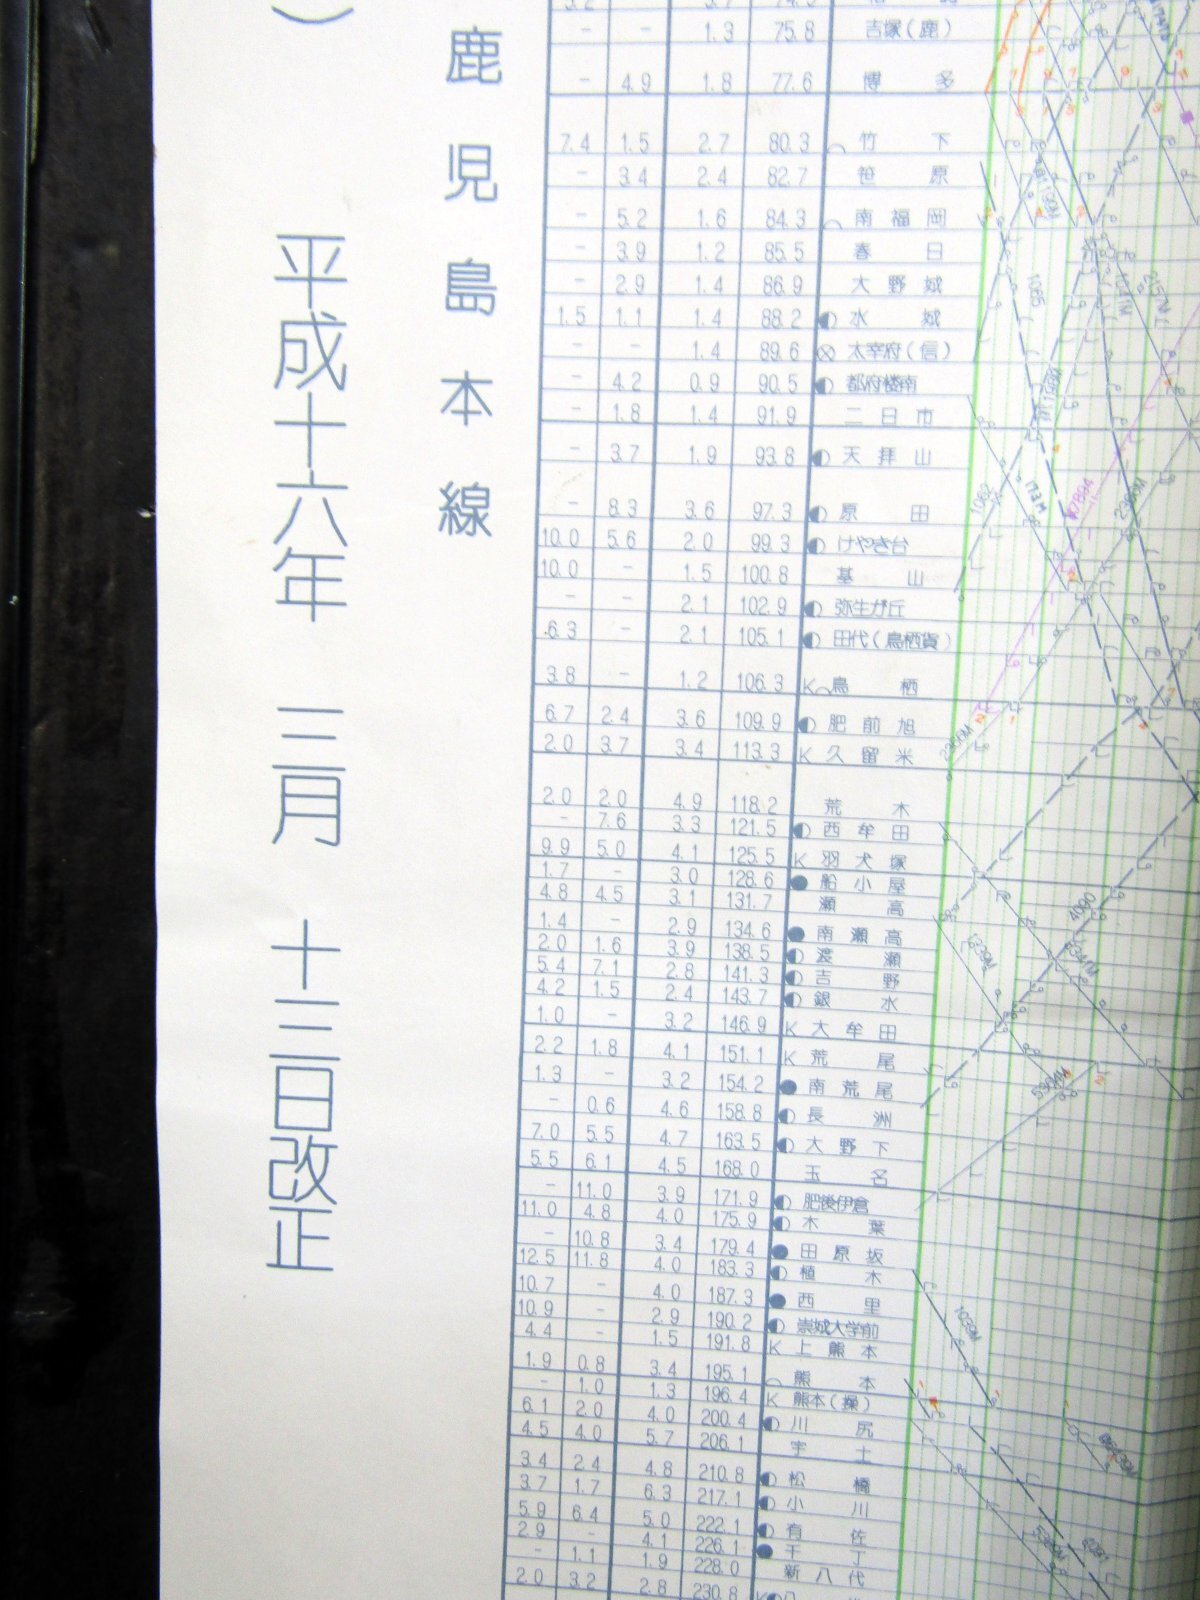 鹿児島本線
平成十六年 三月 十三日改正
- - 1.3 75.8 吉塚(鹿)
- 4.9 1.8 77.6 博多
7.4 1.5 2.7 80.3 竹下
- 3.4 2.4 82.7 笹原
- 5.2 1.6 84.3 南福岡
- 3.9 1.2 85.5 春日
- 2.9 1.4 86.9 大野城
1.5 1.1 1.4 88.2 水城
- - 1.4 89.6 太宰府(信)
- 4.2 0.9 90.5 都府楼南
- 1.8 1.4 91.9 二日市
- 3.7 1.9 93.8 天拝山
- 8.3 3.6 97.3 原田
10.0 5.6 2.0 99.3 けやき台
10.0 - 1.5 100.8 基山
- - 2.1 102.9 弥生が丘
6.3 - 2.1 105.1 田代(鳥栖貨)
3.8 - 1.2 106.3 K 鳥栖
6.7 2.4 3.6 109.9 肥前旭
2.0 3.7 3.4 113.3 K 久留米
2.0 2.0 4.9 118.2 荒木
- 7.6 3.3 121.5 西牟田
9.9 5.0 4.1 125.5 K 羽犬塚
1.7 - 3.0 128.6 船小屋
4.8 4.5 3.1 131.7 瀬高
1.4 - 2.9 134.6 南瀬高
2.0 1.6 3.9 138.5 渡瀬
5.4 7.1 2.8 141.3 吉野
4.2 1.5 2.4 143.7 銀水
1.0 - 3.2 146.9 K 大牟田
2.2 1.8 4.1 151.1 K 荒尾
1.3 - 3.2 154.2 南荒尾
- 0.6 4.6 158.8 長洲
7.0 5.5 4.7 163.5 大野下
5.5 6.1 4.5 168.0 玉名
- 11.0 3.9 171.9 肥後伊倉
11.0 4.8 4.0 175.9 木葉
- 10.8 3.4 179.4 田原坂
12.5 11.8 4.0 183.3 植木
10.7 - 4.0 187.3 西里
10.9 - 2.9 190.2 崇城大学前
4.4 - 1.5 191.8 K 上熊本
1.9 0.8 3.4 195.1 熊本
- 1.0 1.3 196.4 K 熊本(操)
6.1 2.0 4.0 200.4 川尻
4.5 4.0 5.7 206.1 宇土
3.4 2.4 4.8 210.8 松橋
3.7 1.7 6.3 217.1 小川
5.9 6.4 5.0 222.1 有佐
2.9 - 4.1 226.1 千丁
- 1.1 1.9 228.0 新八代
2.0 3.2 2.8 230.8
1085
1082
173M
2359M
4090
1339M
1039M